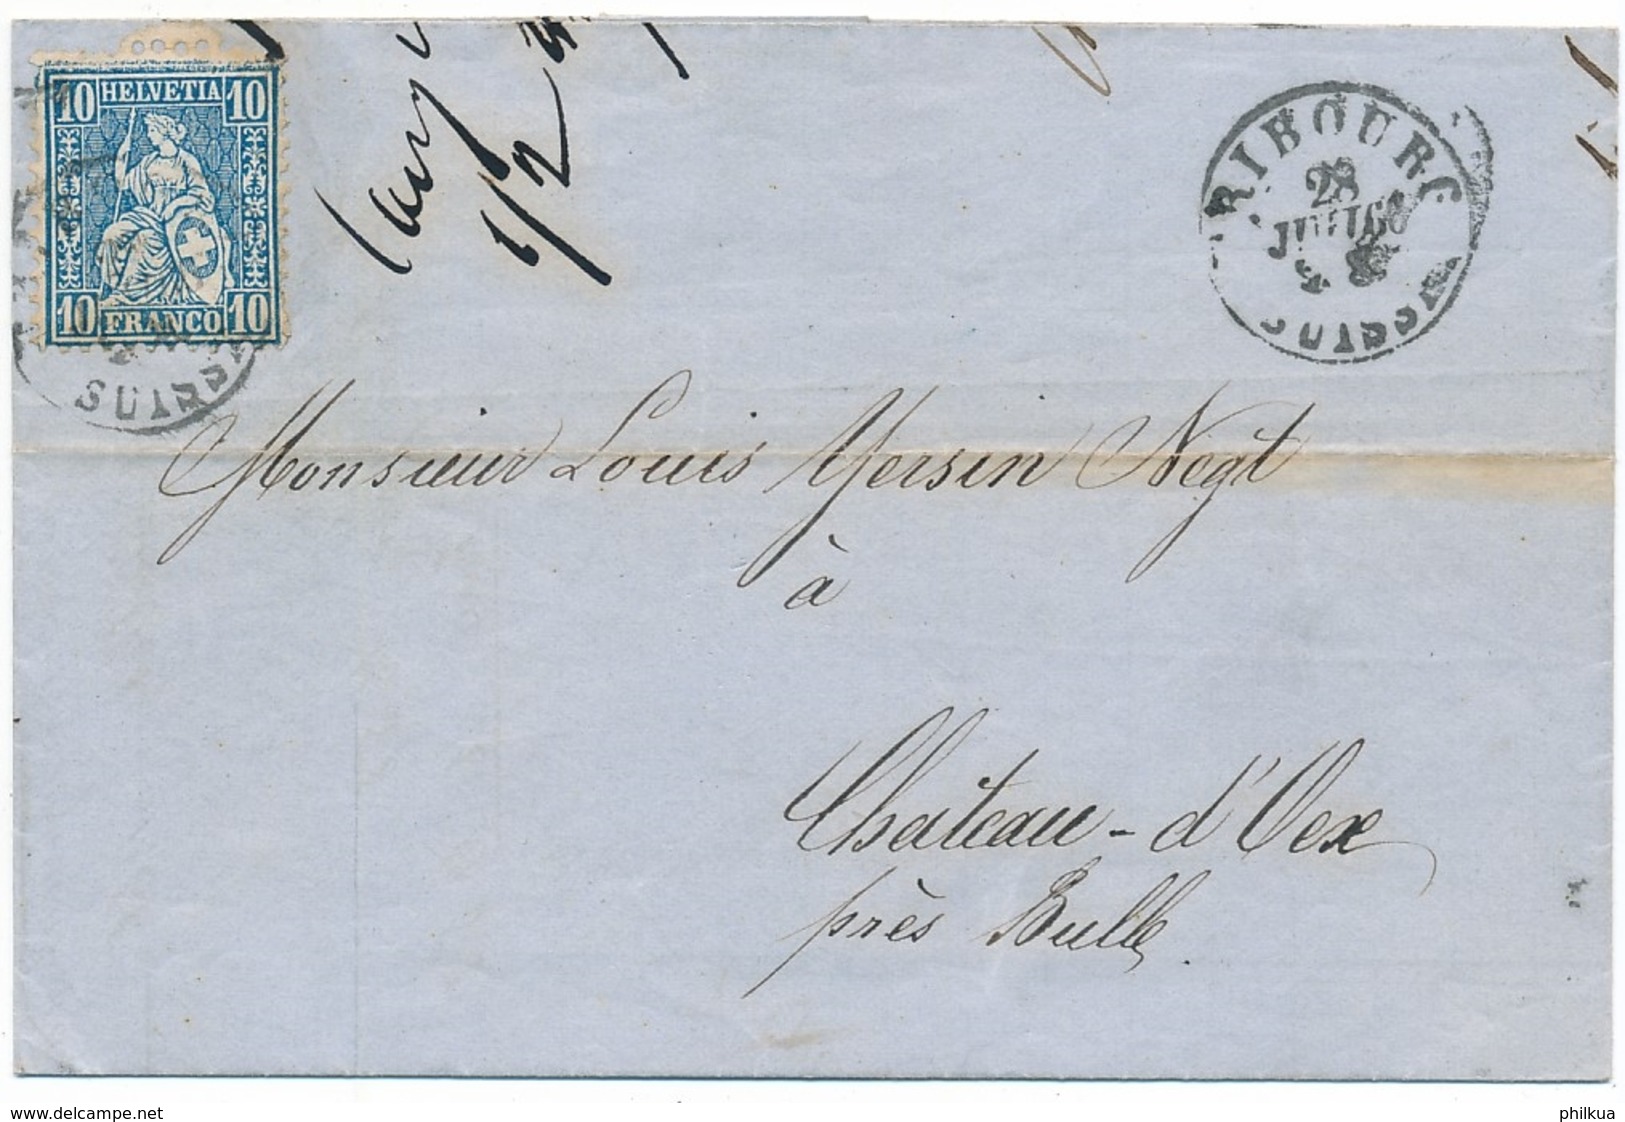 10 HELVETIA 10
10 FRANCO 10
SUISSE
1/2
FRIBOURG
28
SUISSE
Monsieur Louis Yersin Negt
à
Château-d'Oex
près Bulle.
www.delcampe.net
philkua